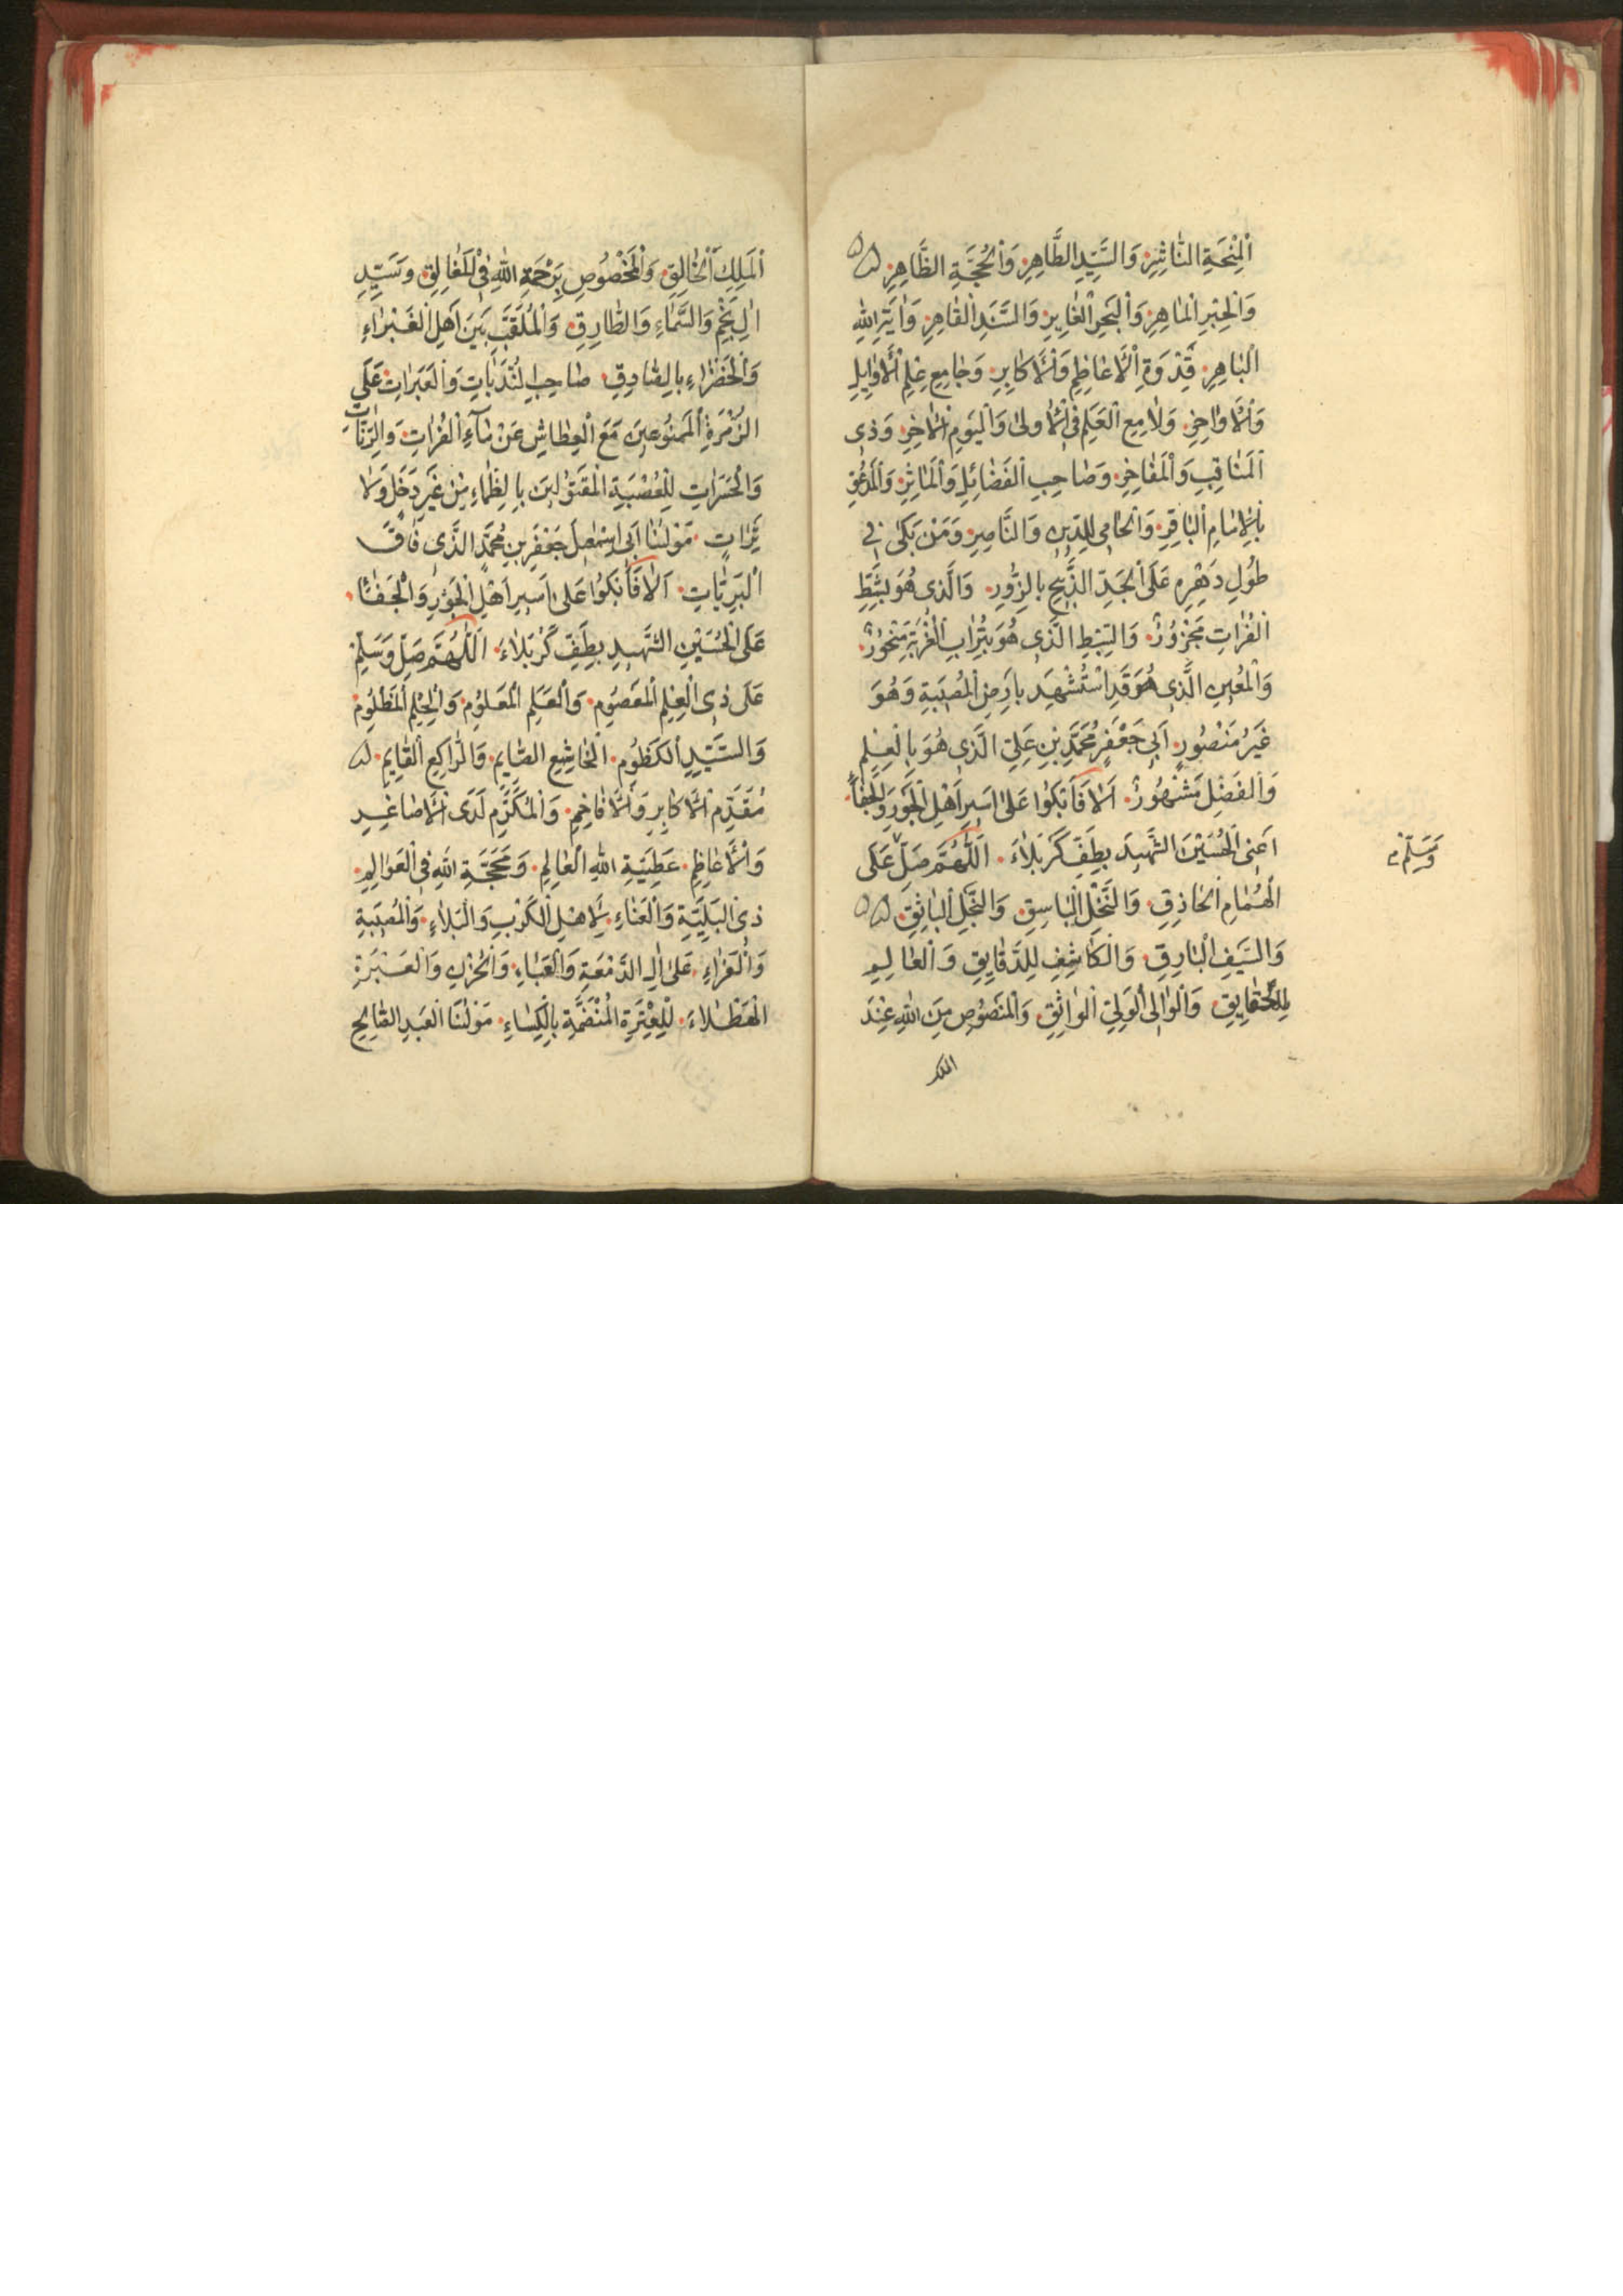 اَلْمِنْحَةِ النَّاشِرِ وَالسَّيِّدِ الطَّاهِرِ وَالْحُجَّةِ الظَّاهِرِ
وَالْحِبْرِ الْمَاهِرِ وَالْبَحْرِ الْغَابِرِ وَالسَّنَدِ الْقَاهِرِ وَاٰيَةِ اللّٰهِ
الْبَاهِرِ قُدْوَةِ الْاَعَاظِمِ وَالْاَكَابِرِ وَجَامِعِ عِلْمِ الْاَوَايِلِ
وَالْاَوَاخِرِ وَلَامِعِ الْعَلَمِ فِى الْاُولٰى وَالْيَوْمِ الْاٰخِرِ وَذِى
الْمَنَاقِبِ وَالْمَفَاخِرِ وَصَاحِبِ الْفَضَائِلِ وَالْمَاٰثِرِ وَالْمَدْعُوِّ
بِالْاِمَامِ الْبَاقِرِ وَالْحَامِى لِلدِّينِ وَالنَّاصِرِ وَمَنْ بَكٰى فِى
طُولِ دَهْرِهِ عَلَى الْجَدِّ الذَّبِيحِ بِالزُّورِ وَالَّذِى هُوَ بِشَطِّ
الْفُرَاتِ مَجْزُورٌ وَالسِّبْطِ الَّذِى هُوَ بِتُرَابِ الْغُرْبَةِ مَنْحُورٌ
وَالْمُعِينِ الَّذِى هُوَ قَدِ اسْتُشْهِدَ بِاَرْضِ الْمُصِيبَةِ وَهُوَ
غَيْرُ مَنْصُورٍ اَبِى جَعْفَرٍ مُحَمَّدِ بْنِ عَلِىٍّ الَّذِى هُوَ بِالْعِلْمِ
وَالْفَضْلِ مَشْهُورٌ اَلَا فَابْكُوا عَلٰى اَسِيرِ اَهْلِ الْجَوْرِ وَالْجَفَاۤءِ
اَعْنِى الْحُسَيْنَ الشَّهِيدَ بِطَفِّ كَرْبَلَاءَ اَللّٰهُمَّ صَلِّ عَلَى
وَسَلِّمْ
الْهُمَامِ الْحَاذِقِ وَالنَّخْلِ الْبَاسِقِ وَالنَّجْلِ الْبَاثِقِ
وَالسَّيْفِ الْبَارِقِ وَالْكَاشِفِ لِلدَّقَايِقِ وَالْعَالِمِ
لِلْحَقَايِقِ وَالْوَالِى الْوَلِىِّ الْوَاثِقِ وَالْمَنْصُوصِ مِنَ اللّٰهِ عِنْدَ
الملك
الْمَلِكِ الْخَالِقِ وَالْمَخْصُوصِ بِرَحْمَةِ اللّٰهِ فِى الْمَغَالِقِ وَسَيِّدِ
اٰلِ نَجْمٍ وَالسَّمَاءِ وَالطَّارِقِ وَالْمُلَقَّبِ بَيْنَ اَهْلِ الْغَبْرَاءِ
وَالْخَضْرَاءِ بِالصَّادِقِ صَاحِبِ النُّدَبَاتِ وَالْعَبَرَاتِ عَلَى
الزُّمْرَةِ الْمَمْنُوعِينَ مَعَ الْعِطَاشِ عَنْ مَاۤءِ الْفُرَاتِ وَالرَّنَّاتِ
وَالْحَسَرَاتِ لِلْعُصْبَةِ الْمَقْتُولِينَ بِالظَّمَاءِ مِنْ غَيْرِ دَخَلٍ وَلَا
تِرَاتٍ مَوْلٰنَا اَبِى اِسْمٰعِيلَ جَعْفَرِ بْنِ مُحَمَّدٍ الَّذِى فَاقَ
الْبَرِيَّاتِ اَلَا فَابْكُوا عَلٰى اَسِيرِ اَهْلِ الْجَوْرِ وَالْجَفَاۤءِ
عَلَى الْحُسَيْنِ الشَّهِيدِ بِطَفِّ كَرْبَلَاءَ اَللّٰهُمَّ صَلِّ وَسَلِّمْ
عَلٰى ذِى الْعِلْمِ الْمَعْصُومِ وَالْعَلَمِ الْمَعْلُومِ وَالْحِلْمِ الْمَظْلُومِ
وَالسَّيِّدِ الْكَظُومِ الْخَاشِعِ الصَّايِمِ وَالرَّاكِعِ الْقَايِمِ
مُقَدَّمِ الْاَكَابِرِ وَالْاَفَاخِمِ وَالْمُكَرَّمِ لَدَى الْاَصَاغِيرِ
وَالْاَعَاظِمِ عَطِيَّةِ اللّٰهِ الْعَالِمِ وَمَحَجَّةِ اللّٰهِ فِى الْعَوَالِمِ
ذِى الْبَلِيَّةِ وَالْعَنَاءِ لِاَهْلِ الْكَرْبِ وَالْبَلَاءِ وَالْمُصِيبَةِ
وَالْعَزَاءِ عَلٰى اٰلِ الدَّمْعَةِ وَالْعَبَاءِ وَالْحُزْنِ وَالْعَبْرَةِ
الْهَطْلَاءَ لِلْعِتْرَةِ الْمُنْضَمَّةِ بِالْكِسَاءِ مَوْلٰنَا الْعَبْدِ الصَّالِحِ